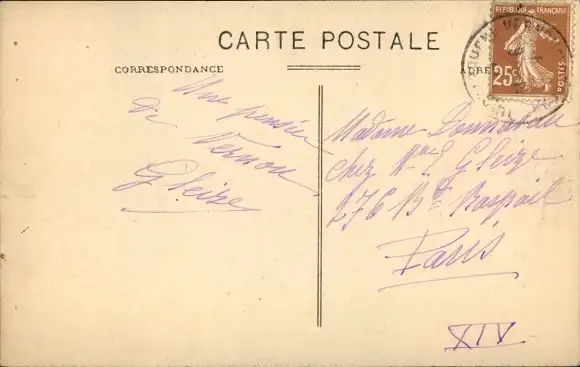 CARTE POSTALE
CORRESPONDANCE
RÉPUBLIQUE FRANÇAISE
25c
POSTES
Une pensée
de Vernon
Gleize
Madame
chez Mme L Gleize
276 Bd Raspail
Paris
XIV